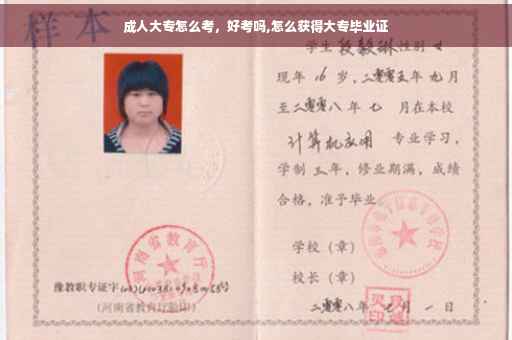 成人大专怎么考，好考吗,怎么获得大专毕业证
样本
学生 段毅琳 性别 女
现年 16 岁，二零零五年 九 月
至二零零八年 七 月在本校
计算机应用 专业学习，
学制 三 年，修业期满，成绩
合格，准予毕业
学校（章）
校长（章）
二零零八年 七 月 一 日
河南省教育厅
豫教职专证字
(河南省教育厅验印)